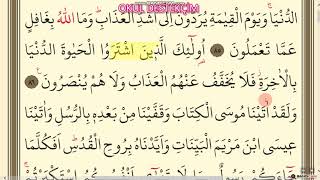 OKUL DESTEKÇİM
الدُّنْيَا وَيَوْمَ الْقِيٰمَةِ يُرَدُّونَ اِلٰٓى اَشَدِّ الْعَذَابِ وَمَا اللّٰهُ بِغَافِلٍ
عَمَّا تَعْمَلُونَ ﴿٨٥﴾ اُولٰٓئِكَ الَّذِينَ اشْتَرَوُا الْحَيٰوةَ الدُّنْيَا
بِالْاٰخِرَةِ فَلَا يُخَفَّفُ عَنْهُمُ الْعَذَابُ وَلَا هُمْ يُنْصَرُونَ ﴿٨٦﴾
وَلَقَدْ اٰتَيْنَا مُوسَى الْكِتَابَ وَقَفَّيْنَا مِنْ بَعْدِهِ بِالرُّسُلِ وَاٰتَيْنَا
عِيسَى ابْنَ مَرْيَمَ الْبَيِّنَاتِ وَاَيَّدْنَاهُ بِرُوحِ الْقُدُسِ اَفَكُلَّمَا